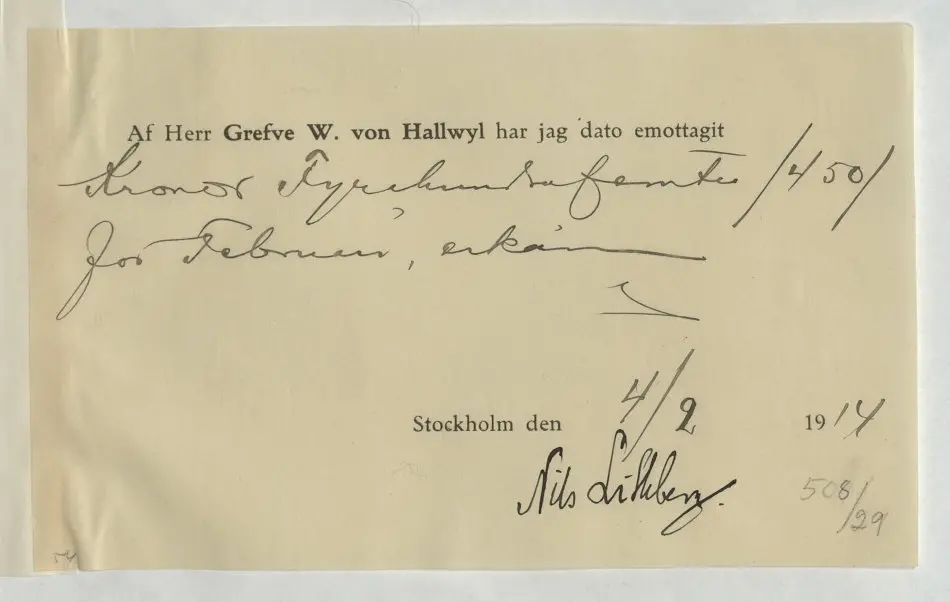 Af Herr Grefve W. von Hallwyl har jag dato emottagit
Kronor Fyrahundrafemtio /450/
för Februari, erkän
Stockholm den 4/2 1914
Nils Lithberg.
508/29
54